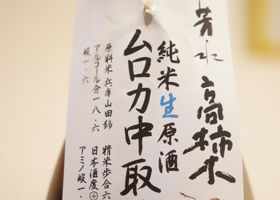 芳水 高柿木
純米生原酒
台力中取
原料米兵庫山田錦 精米歩合六
アルコール分一八.六 日本酒度⊕
酸一.六 アミノ酸一.